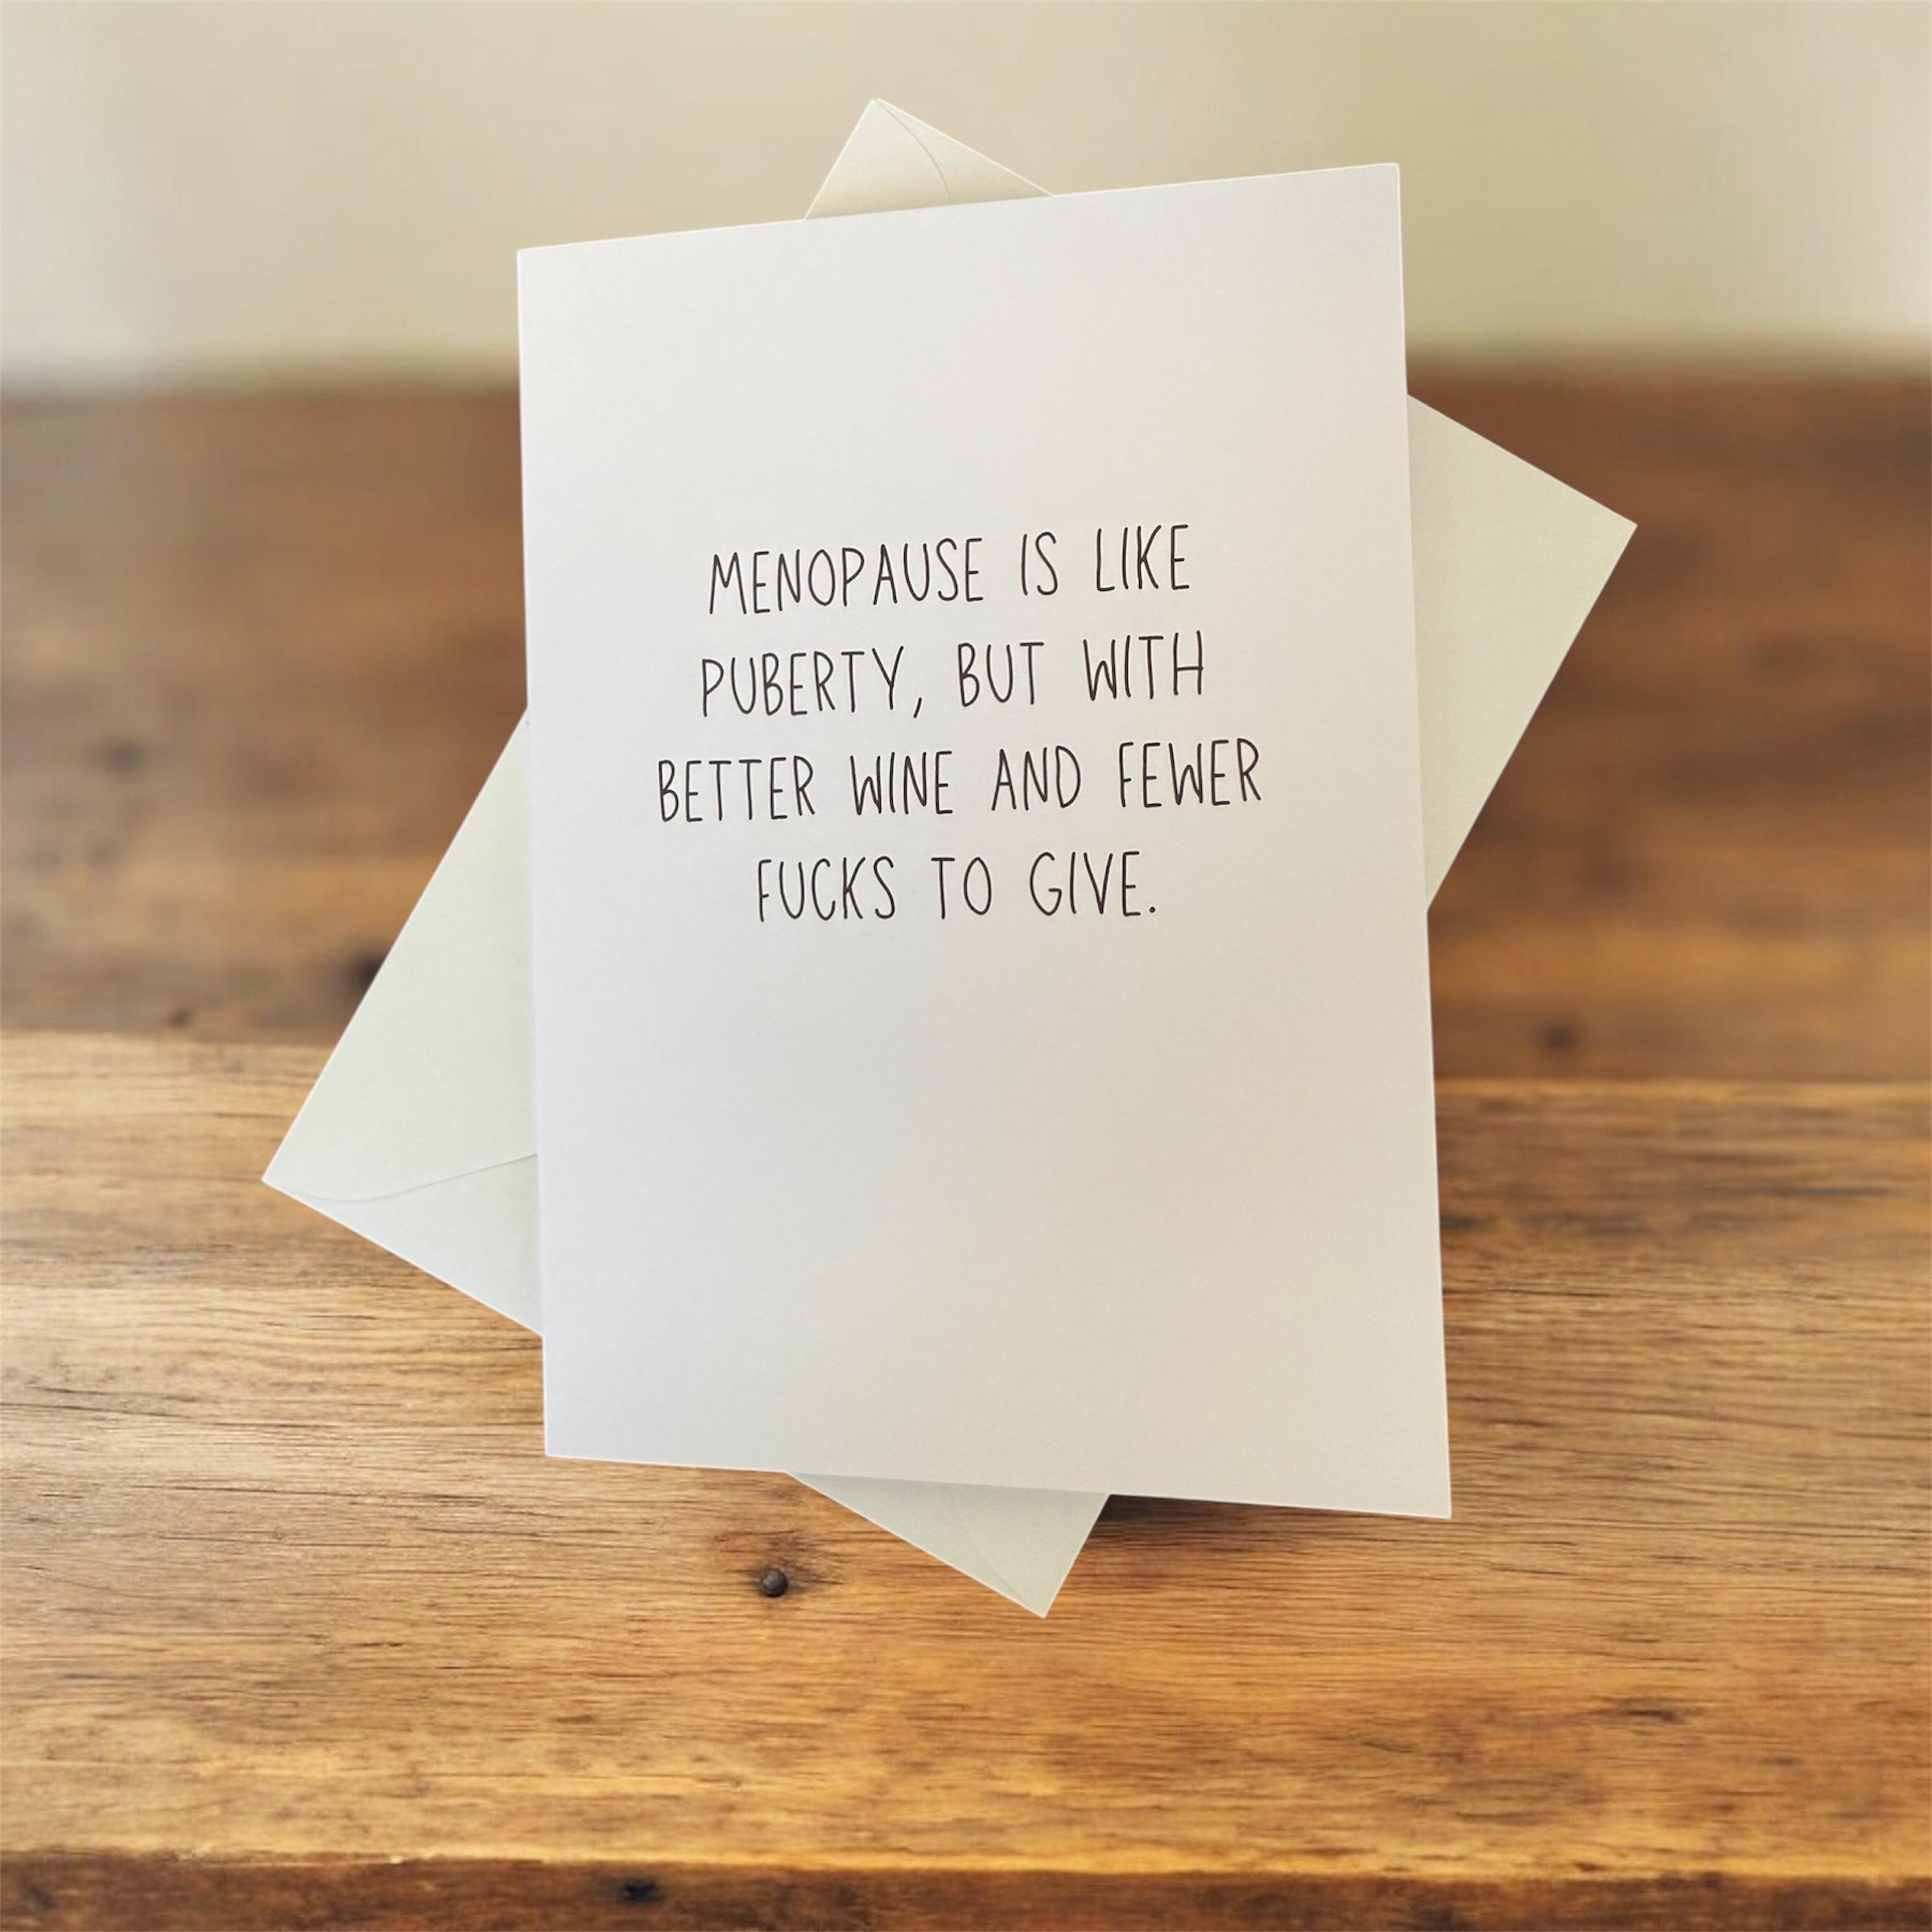 MENOPAUSE IS LIKE
PUBERTY, BUT WITH
BETTER WINE AND FEWER
FUCKS TO GIVE.